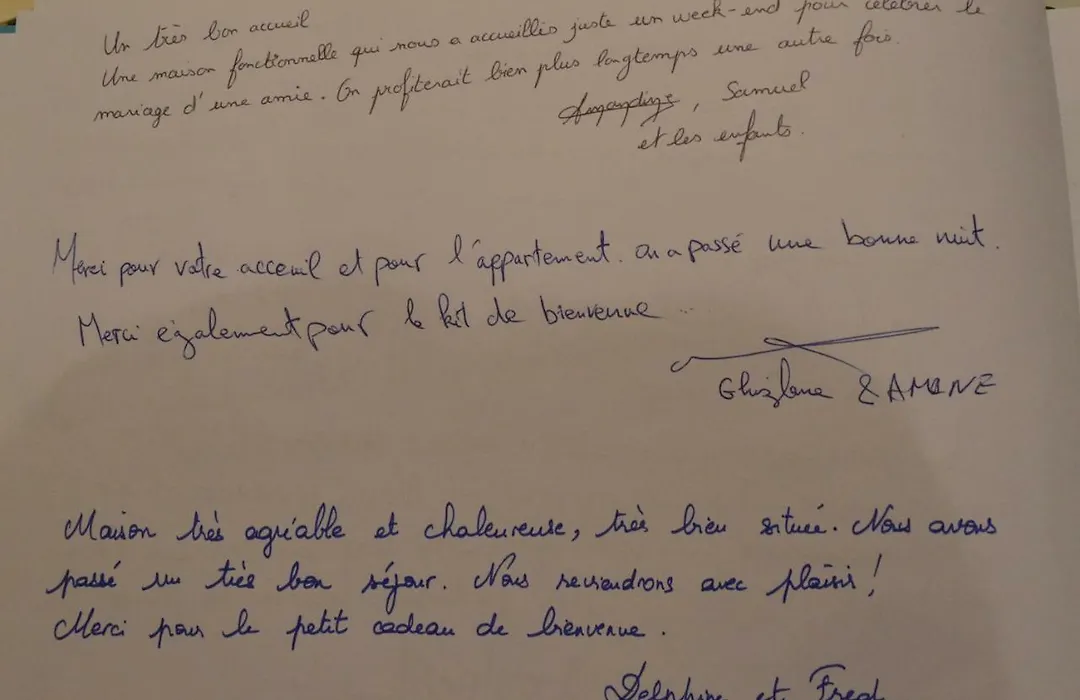 Un très bon accueil
Une maison fonctionnelle qui nous a accueillis juste un week-end pour célébrer le
mariage d'une amie. On profiterait bien plus longtemps une autre fois.
, Samuel
et les enfants.
Merci pour votre acceuil et pour l'appartement. on a passé une bonne nuit.
Merci également pour le kit de bienvenue ..
Ghizlane & AMINE
Maison très agréable et chaleureuse, très bien située. Nous avons
passé un très bon séjour. Nous reviendrons avec plaisir !
Merci pour le petit cadeau de bienvenue.
Delphine et Fred